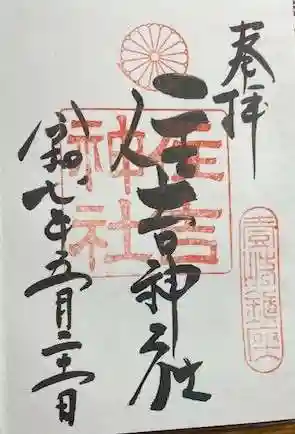 奉拝
住吉神社
住吉
神社
令和七年五月二十一日